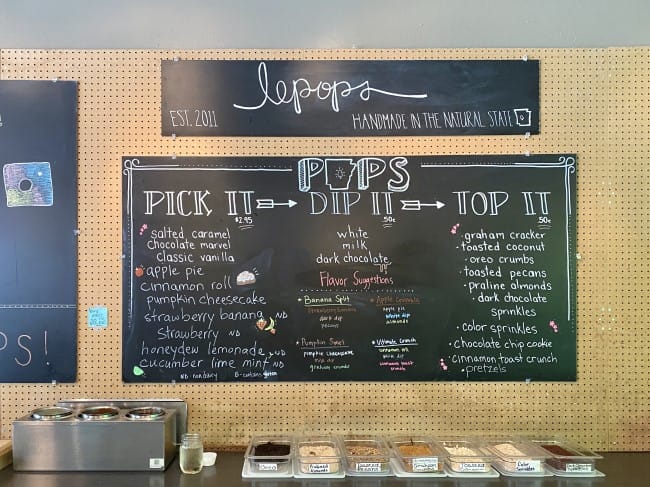 lepops
EST. 2011
HANDMADE IN THE NATURAL STATE
POPS
PICK IT
$2.95
salted caramel
chocolate marvel
classic vanilla
apple pie
cinnamon roll
pumpkin cheesecake
strawberry banana ND
Strawberry ND
honeydew lemonade ND
cucumber lime mint ND
ND-non dairy
DIP IT
.50¢
white
milk
dark chocolate
Flavor Suggestions
Banana Split
Strawberry banana
dark dip
pecans
Apple Crumble
apple pie
white dip
almonds
pumpkin cheesecake
milk dip
graham crumb
Ultimate Crunch
cinnamon roll
milk dip
cinnamon toast crunch
TOP IT
.50¢
graham cracker
toasted coconut
oreo crumbs
toasted pecans
praline almonds
dark chocolate
sprinkles
color sprinkles
chocolate chip cookie
cinnamon toast crunch
pretzels
PS!
Oreo
Color Sprinkles